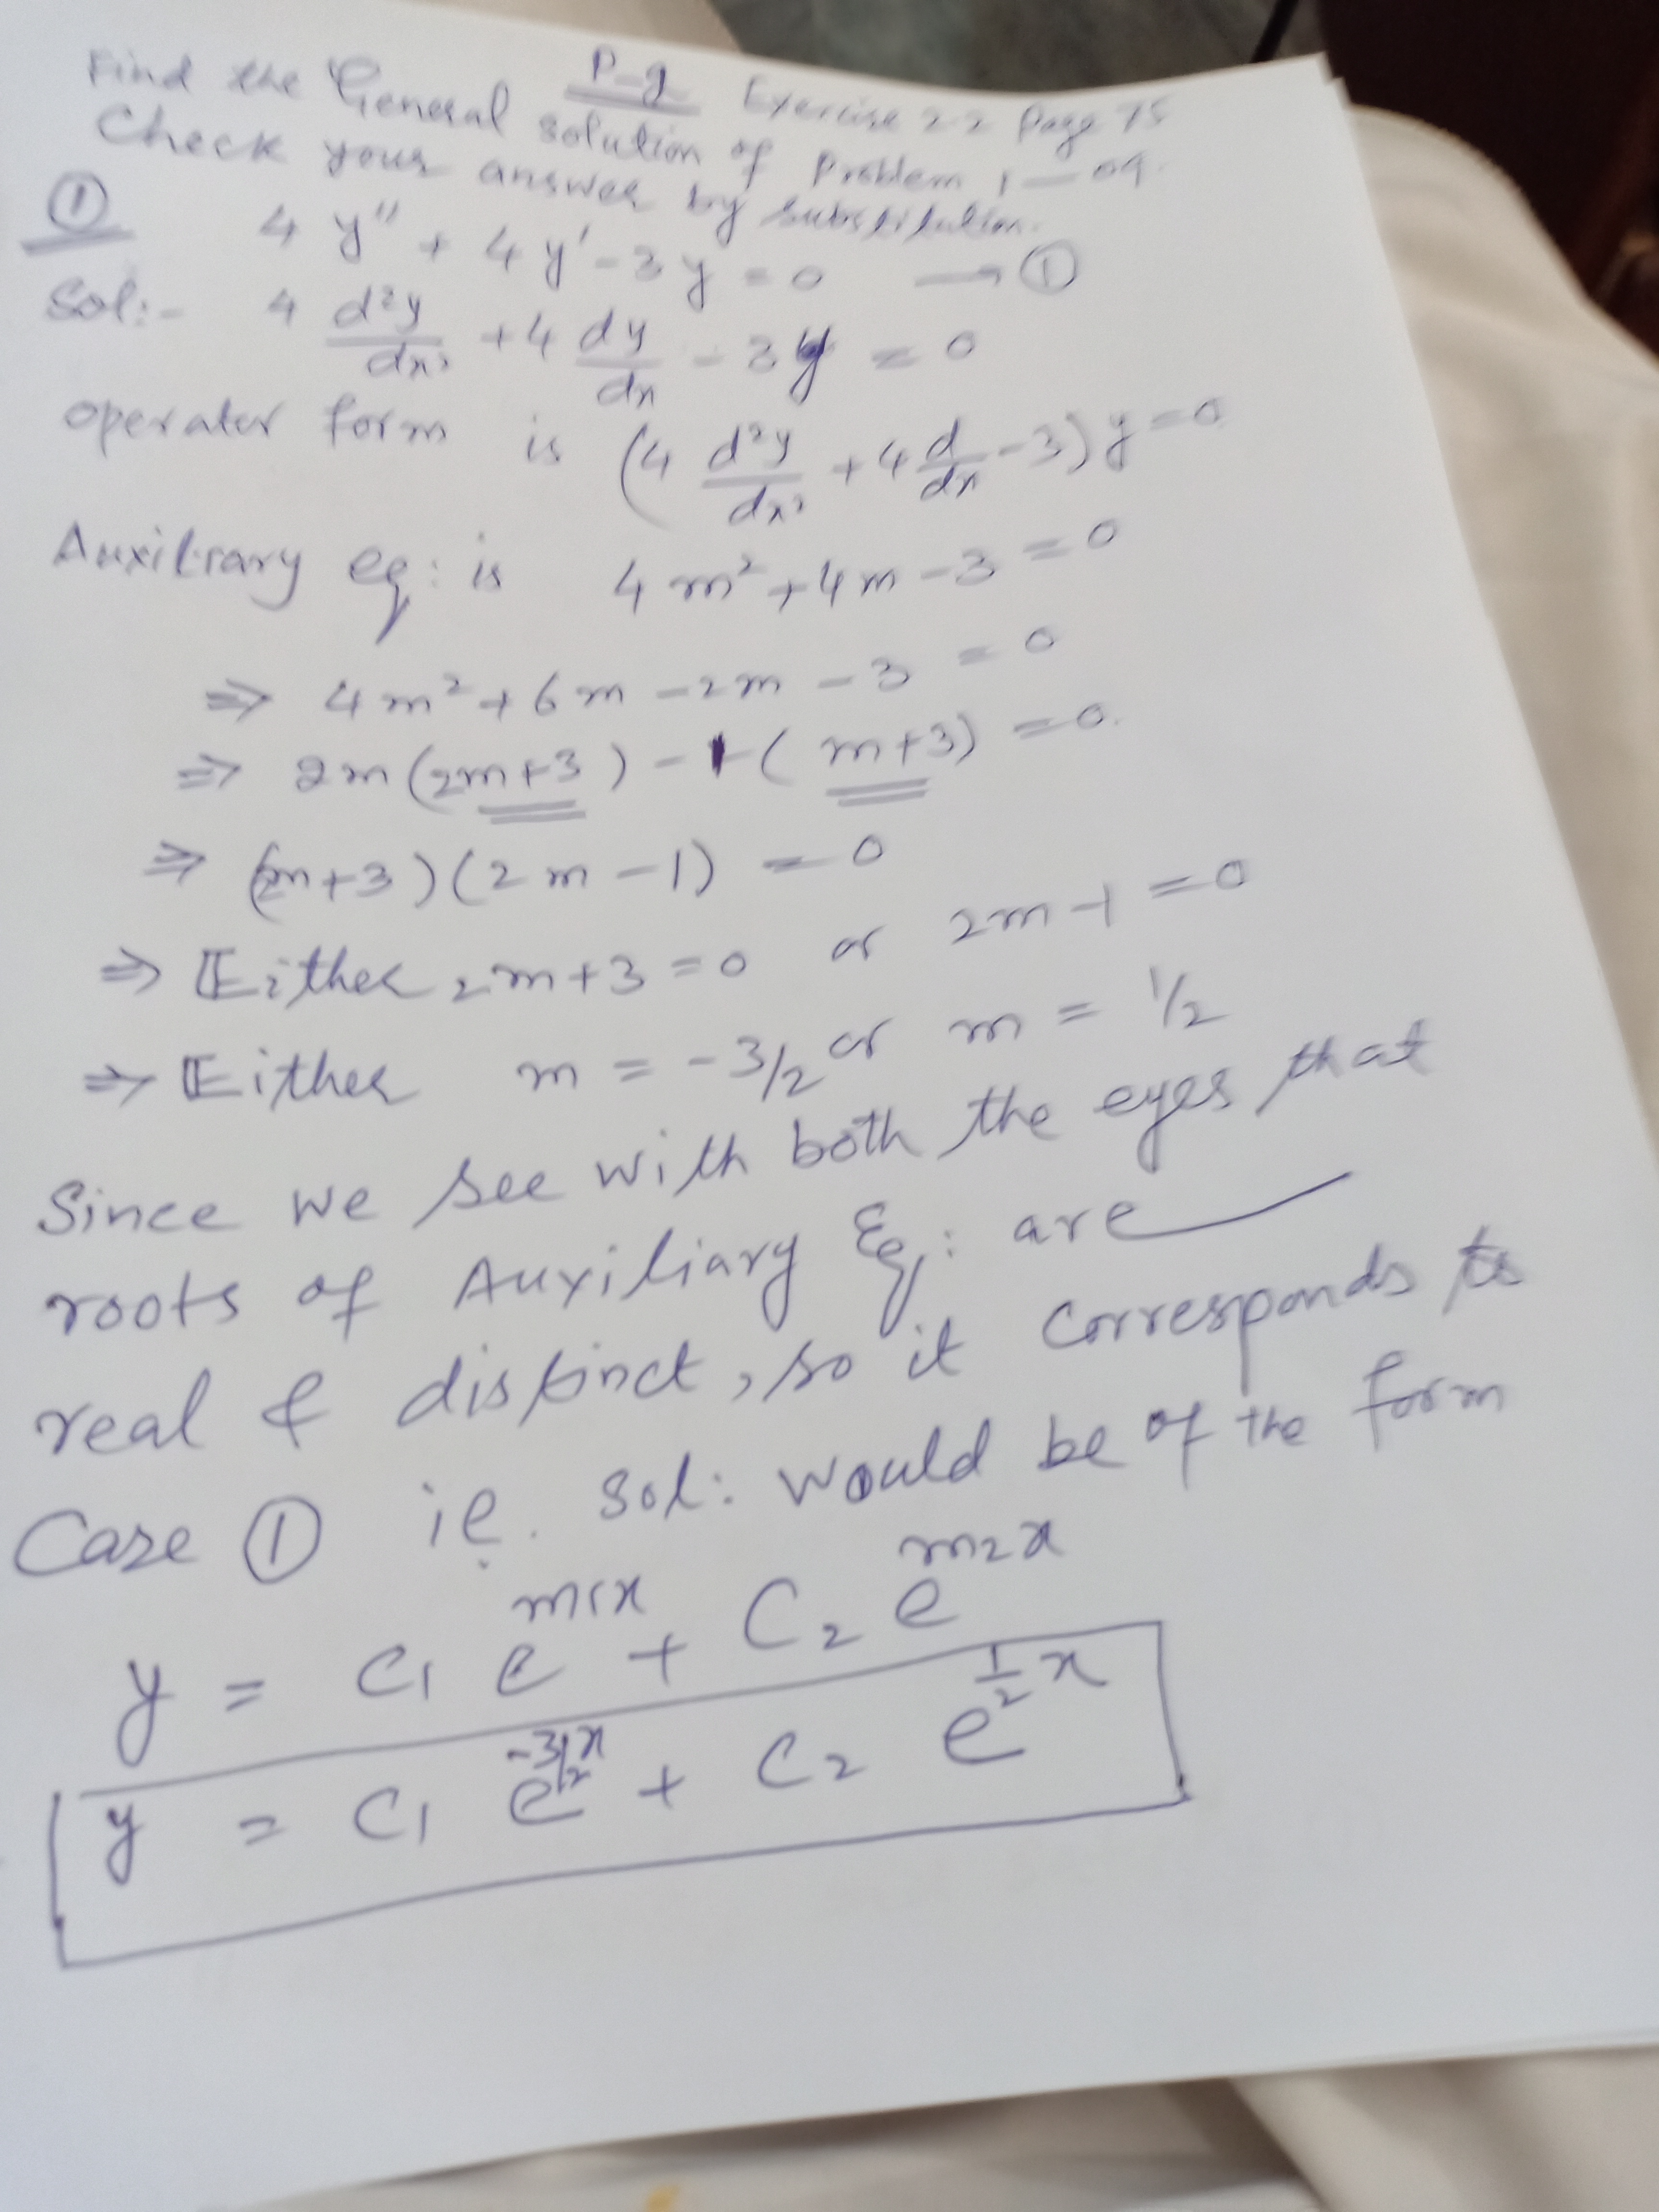 P-g Exercise 2.2 Page 75
Find the General solution of Problem 1 — 09.
Check your answer by substitution.
① 4 y'' + 4 y' - 3 y = 0 → ①
Sol:- 4 d²y/dx² + 4 dy/dx - 3y = 0
operator form is (4 d²y/dx² + 4 d/dx - 3) y = 0
Auxiliary eq: is 4 m² + 4m - 3 = 0
⇒ 4 m² + 6 m - 2m - 3 = 0
⇒ 2m (2m+3) - 1 ( m+3) = 0.
⇒ (2m+3) (2m - 1) = 0
⇒ Either 2m+3 = 0 or 2m-1 = 0
⇒ Either m = -3/2 or m = 1/2
Since we see with both the eyes that
roots of Auxiliary Eq: are
real & distinct, so it corresponds to
Case ① ie. sol: would be of the form
y = C₁ e^m₁x + C₂ e^m₂x
y = C₁ e^-3/2x + C₂ e^1/2x